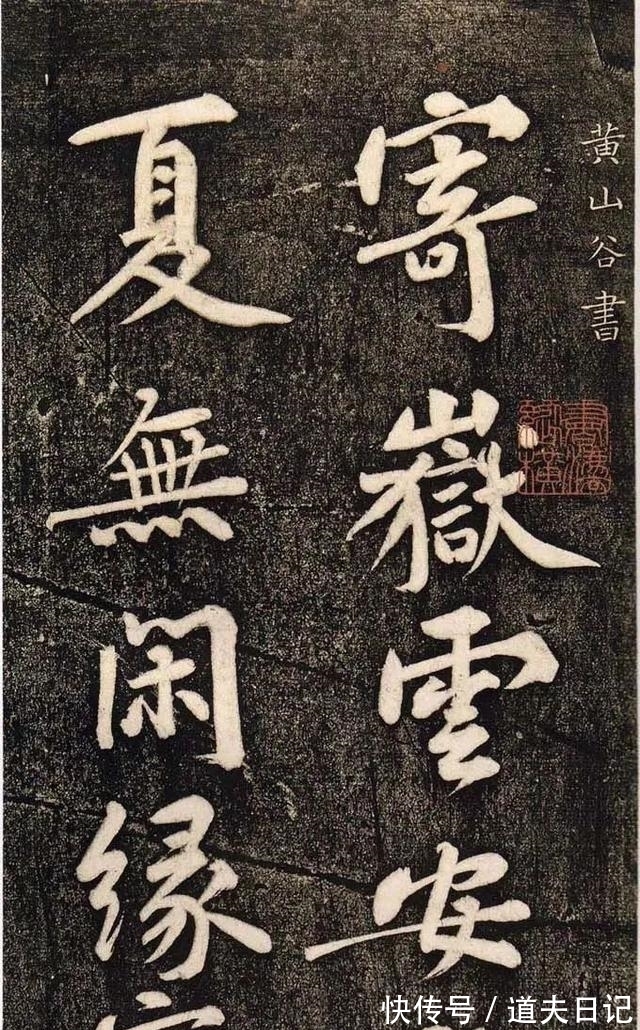 黄山谷書
寄嶽雲安
夏無閑緣
快传号/道夫日记